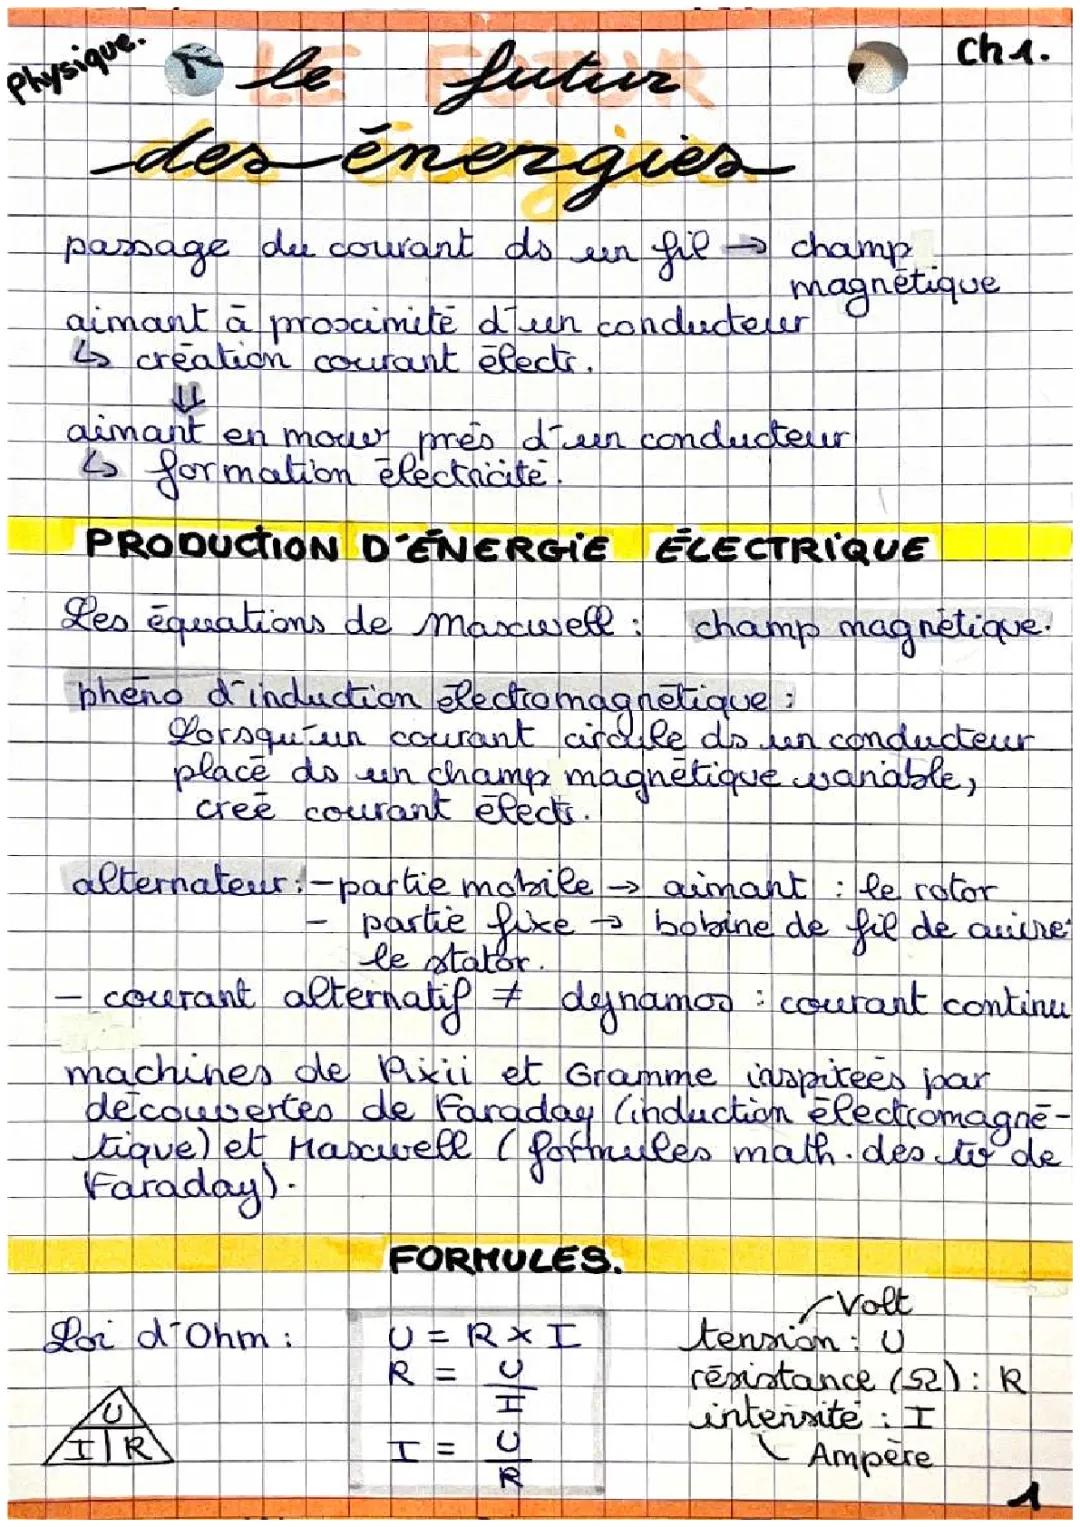 Physique.
Ch 1.
le futur
LE FUTUR
des énergies
passage du courant ds un fil → champ
magnétique
aimant à proximité d'un conducteur
↳ création courant électr.
⇓
aimant en mouv près d'un conducteur
↳ formation électricité.
PRODUCTION D'ÉNERGIE ÉLECTRIQUE
Les équations de Maxwell : champ magnétique.
phéno d'induction électromagnétique :
Lorsqu'un courant circule ds un conducteur
placé ds un champ magnétique variable,
creé courant électr.
alternateur : - partie mobile → aimant : le rotor
- partie fixe → bobine de fil de cuivre
le stator.
- courant alternatif ≠ dynamos : courant continu
machines de Pixii et Gramme inspitées par
découvertes de Faraday (induction électromagné-
tique) et Maxwell (formules math. des tv de
Faraday).
FORMULES.
Loi d'Ohm :
U = R × I
R = U/I
I = U/R
U
I | R
Volt
tension : U
résistance (Ω) : R
intensité : I
Ampère
1